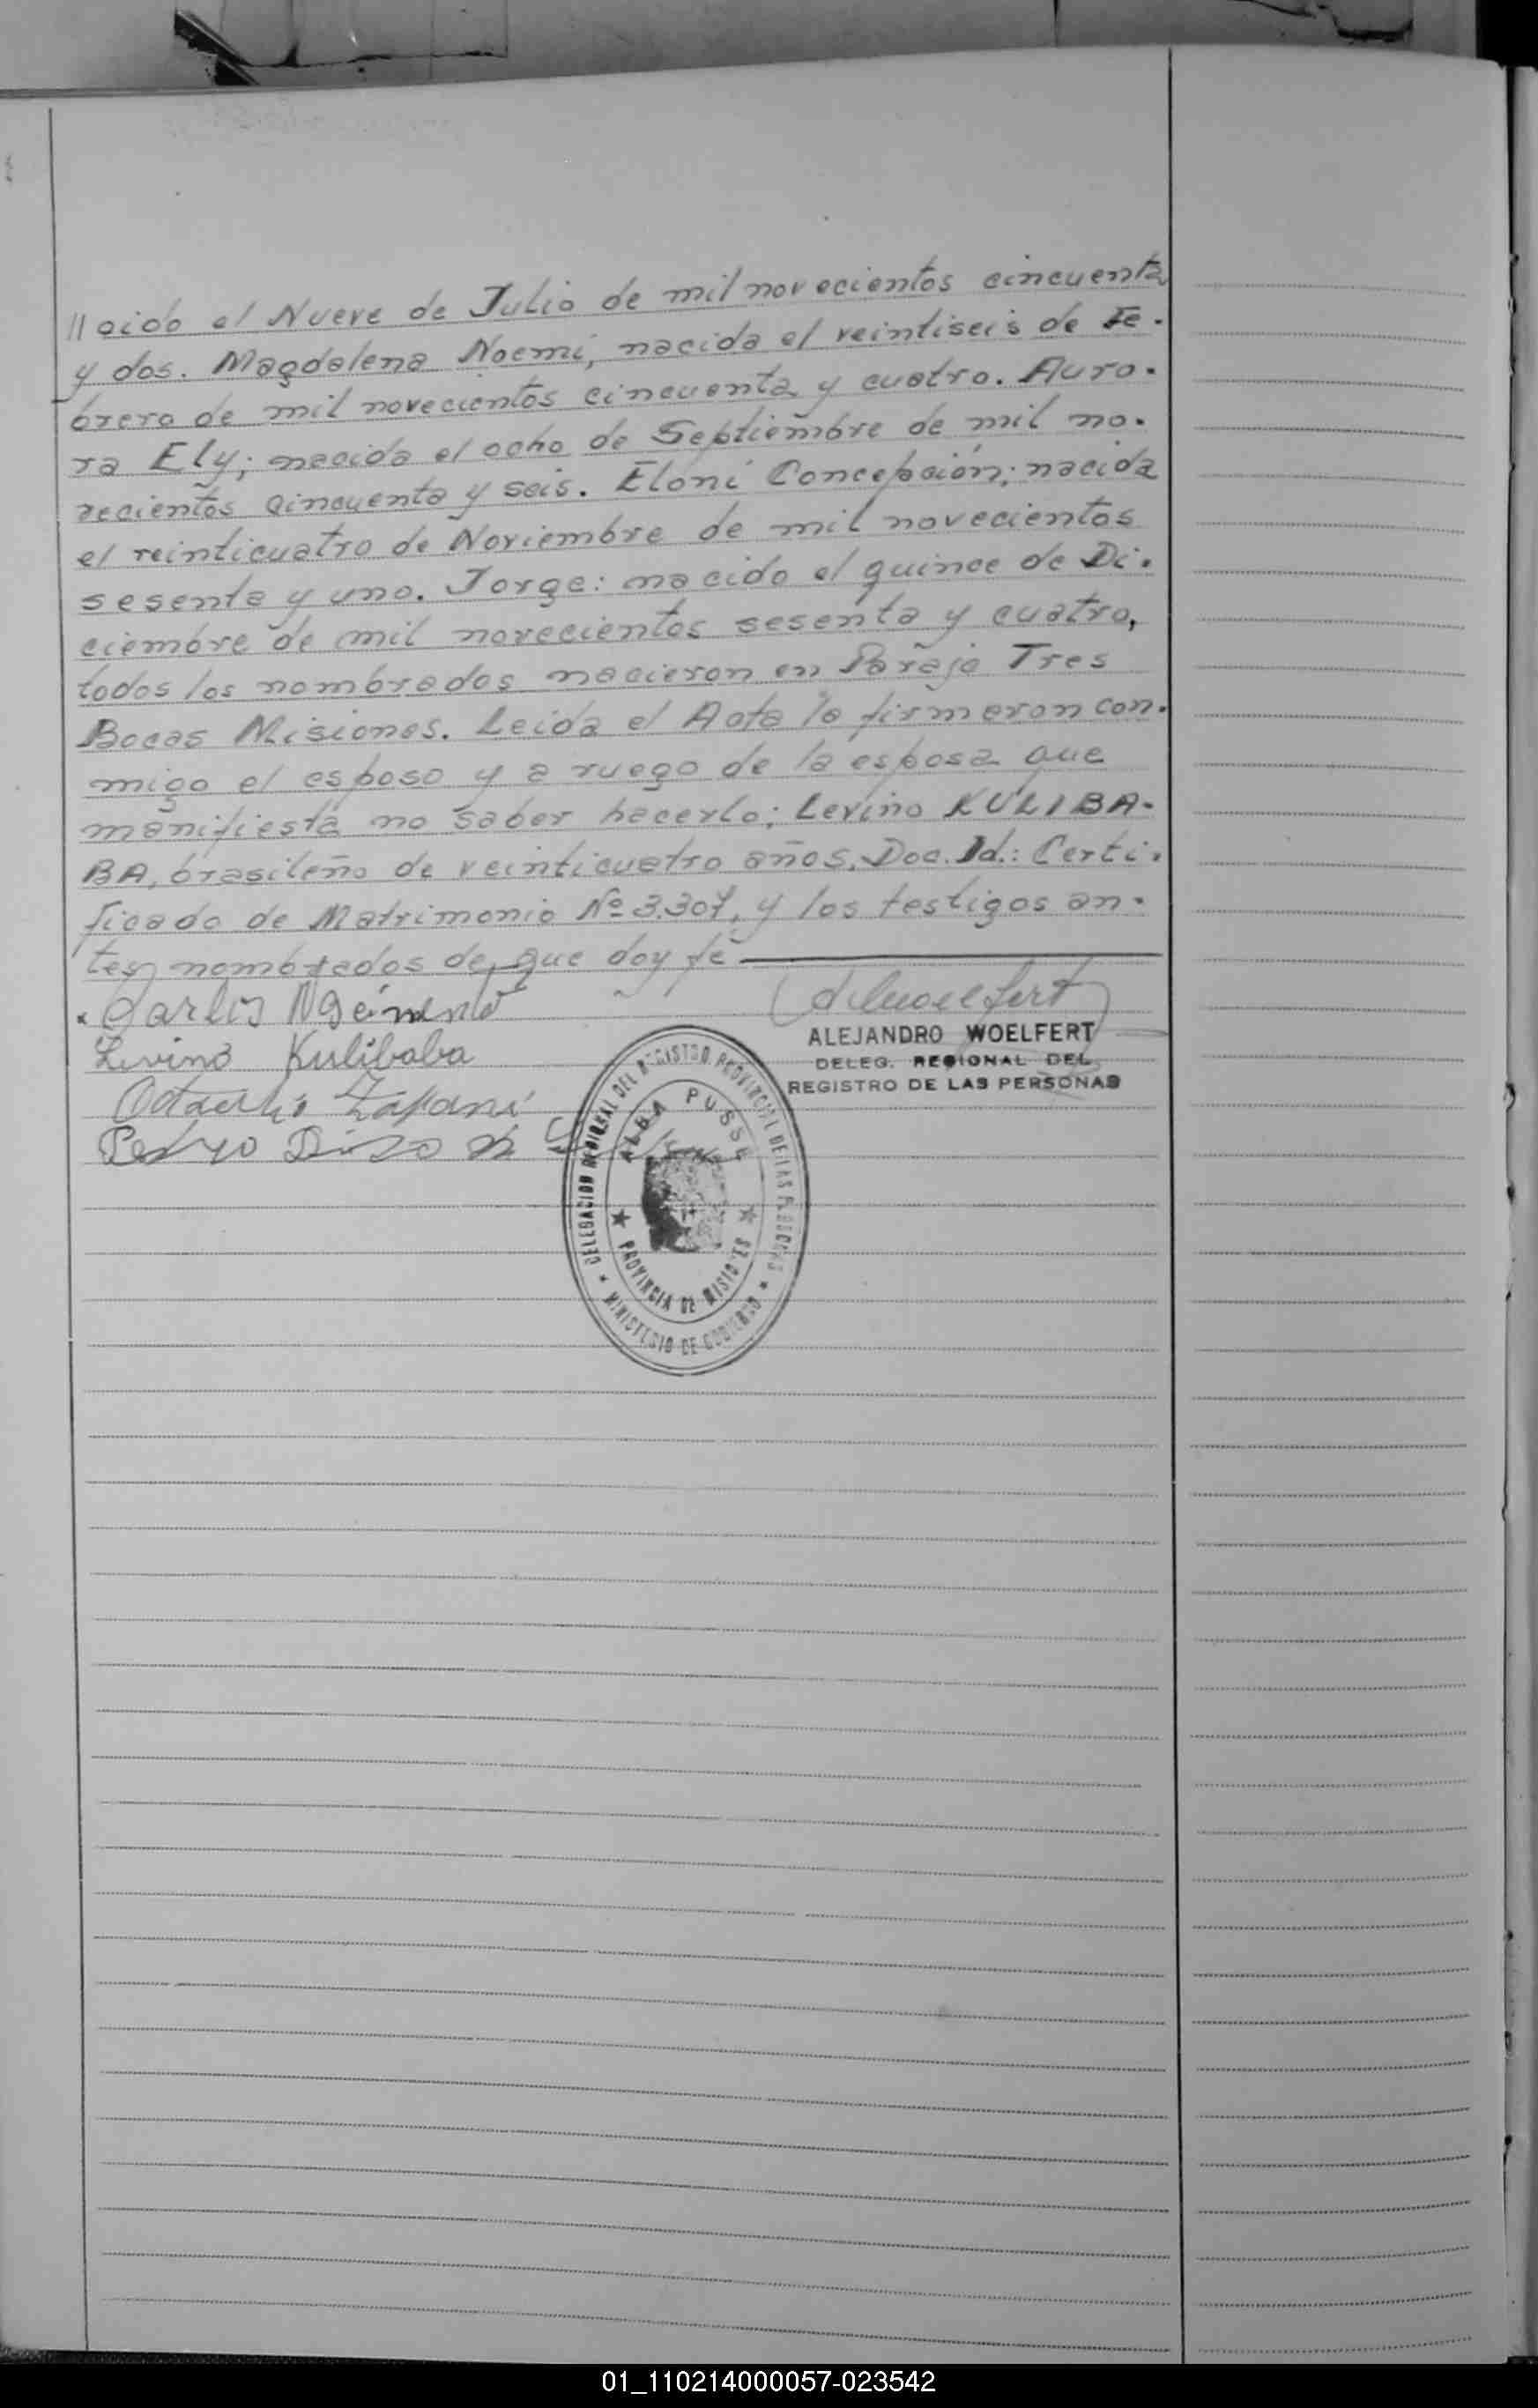 //cido el Nueve de Julio de mil novecientos cincuenta
y dos. Magdalena Noemí, nacida el veintiseis de Fe-
brero de mil novecientos cincuenta y cuatro. Auro-
ra Ely; nacida el ocho de Septiembre de mil no-
vecientos cincuenta y seis. Eloní Concepción; nacida
el veinticuatro de Noviembre de mil novecientos
sesenta y uno. Jorge: nacido el quince de Di-
ciembre de mil novecientos sesenta y cuatro,
todos los nombrados nacieron en Paraje Tres
Bocas Misiones. Leída el Acta la firmaron con-
migo el esposo y a ruego de la esposa que
manifiesta no saber hacerlo; Levino KULIBA-
BA, brasileño de veinticuatro años, Doc. Id.: Certi-
ficado de Matrimonio Nº 3.307, y los testigos an-
tes nombrados de que doy fé
Carlos
Levino Kulibaba
Pedro
ALEJANDRO WOELFERT
DELEG. REGIONAL DEL
REGISTRO DE LAS PERSONAS
DELEGACION REGIONAL DEL REGISTRO PROVINCIAL DE LAS PERSONAS
MINISTERIO DE GOBIERNO
ALBA POSSE
PROVINCIA DE MISIONES
01_110214000057-023542